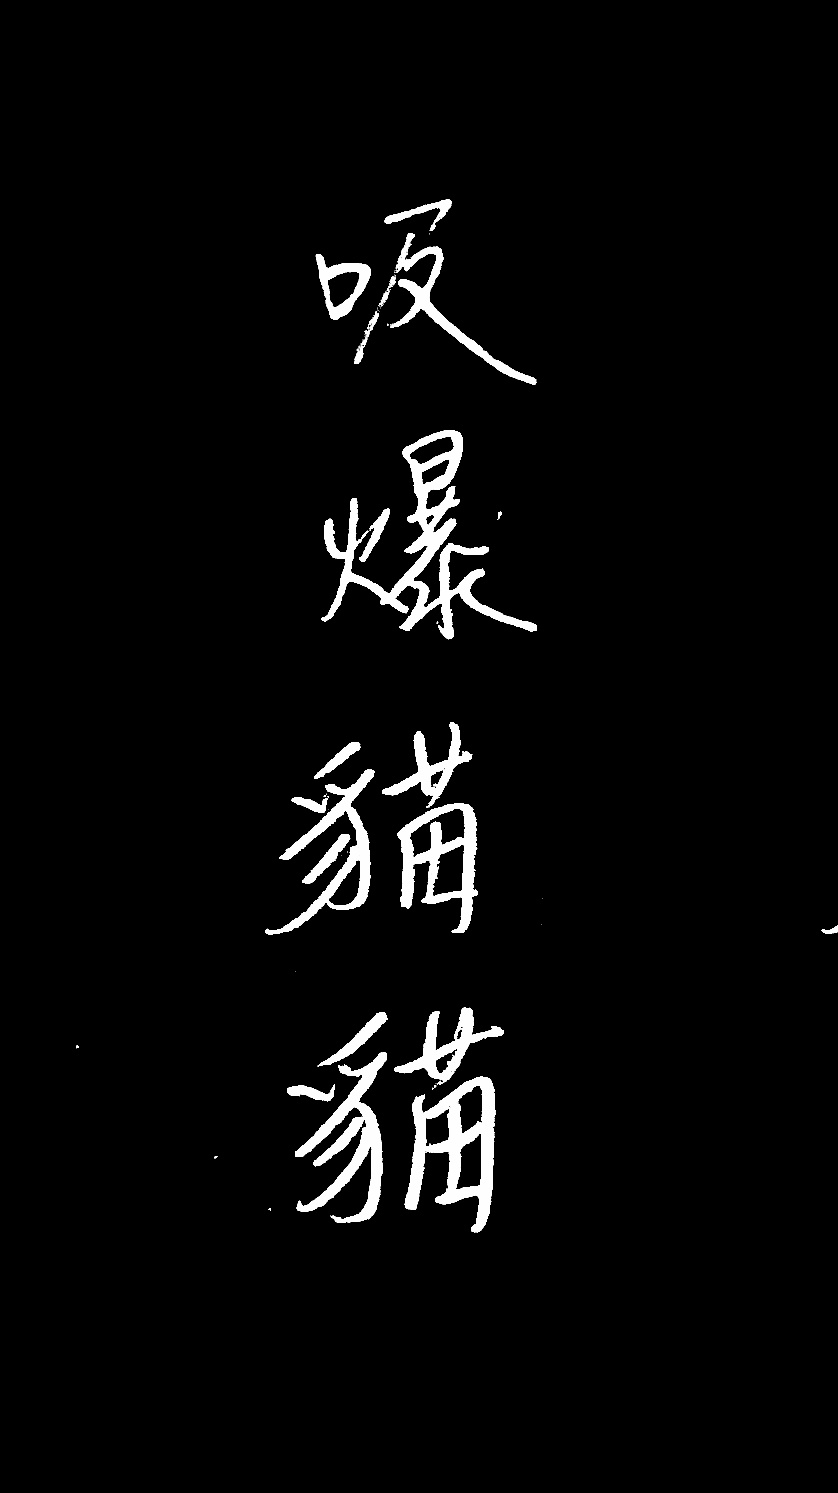 吸爆貓貓